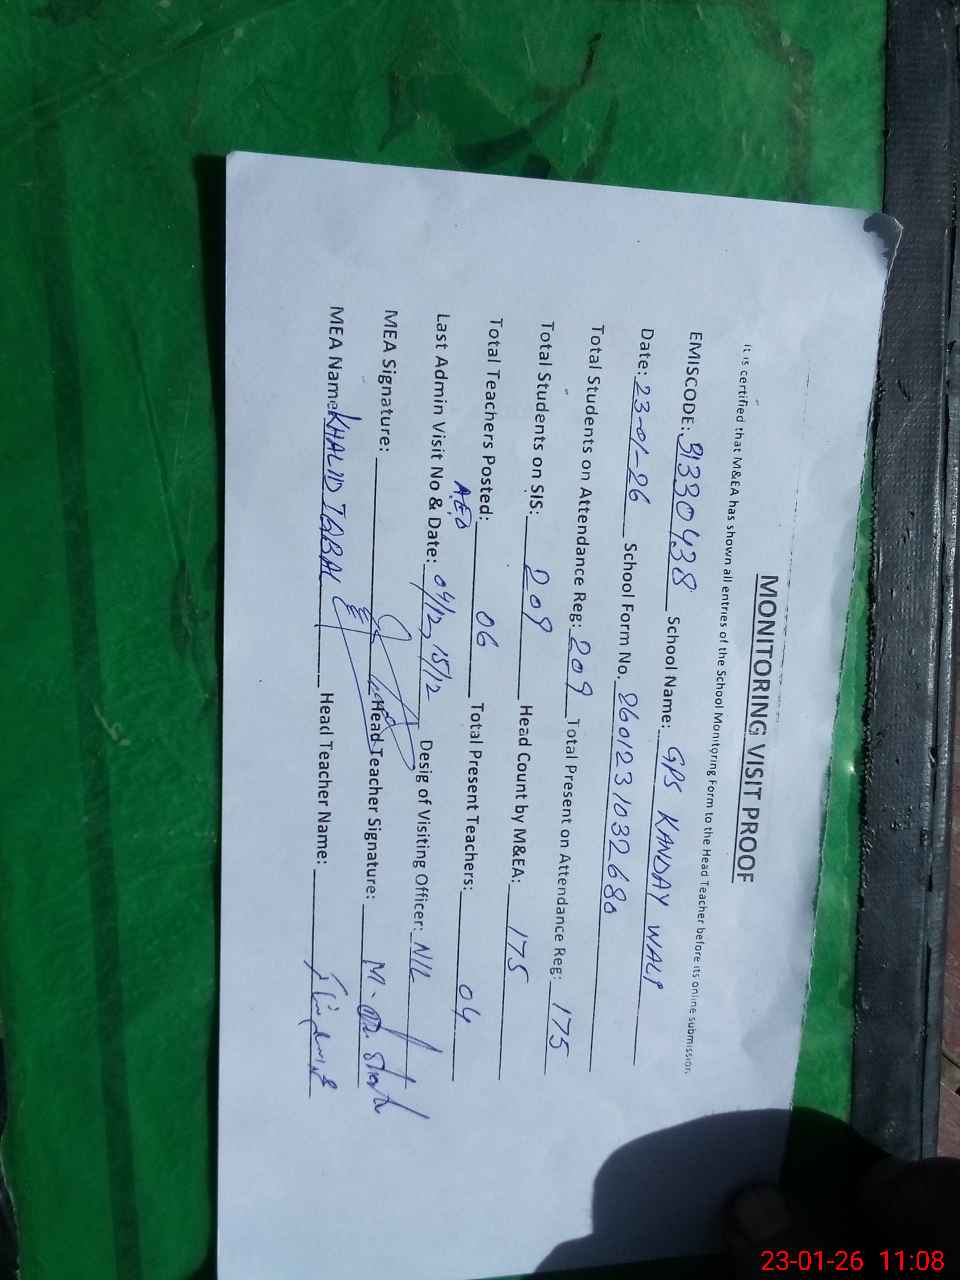 MONITORING VISIT PROOF
It is certified that M&EA has shown all entries of the School Monitoring Form to the Head Teacher before its online submission.
EMISCODE: 31330438 School Name: GPS KANDAY WALI
Date: 23-01-26 School Form No. 8601231032680
Total Students on Attendance Reg: 209 Total Present on Attendance Reg: 175
Total Students on SIS: 209 Head Count by M&EA: 175
Total Teachers Posted: 06 Total Present Teachers: 04
AEO
Last Admin Visit No & Date: 04/12, 15/12 Desig of Visiting Officer: NIL
MEA Signature: Head Teacher Signature:
MEA Name: KHALID IQBAL Head Teacher Name:
23-01-26 11:08